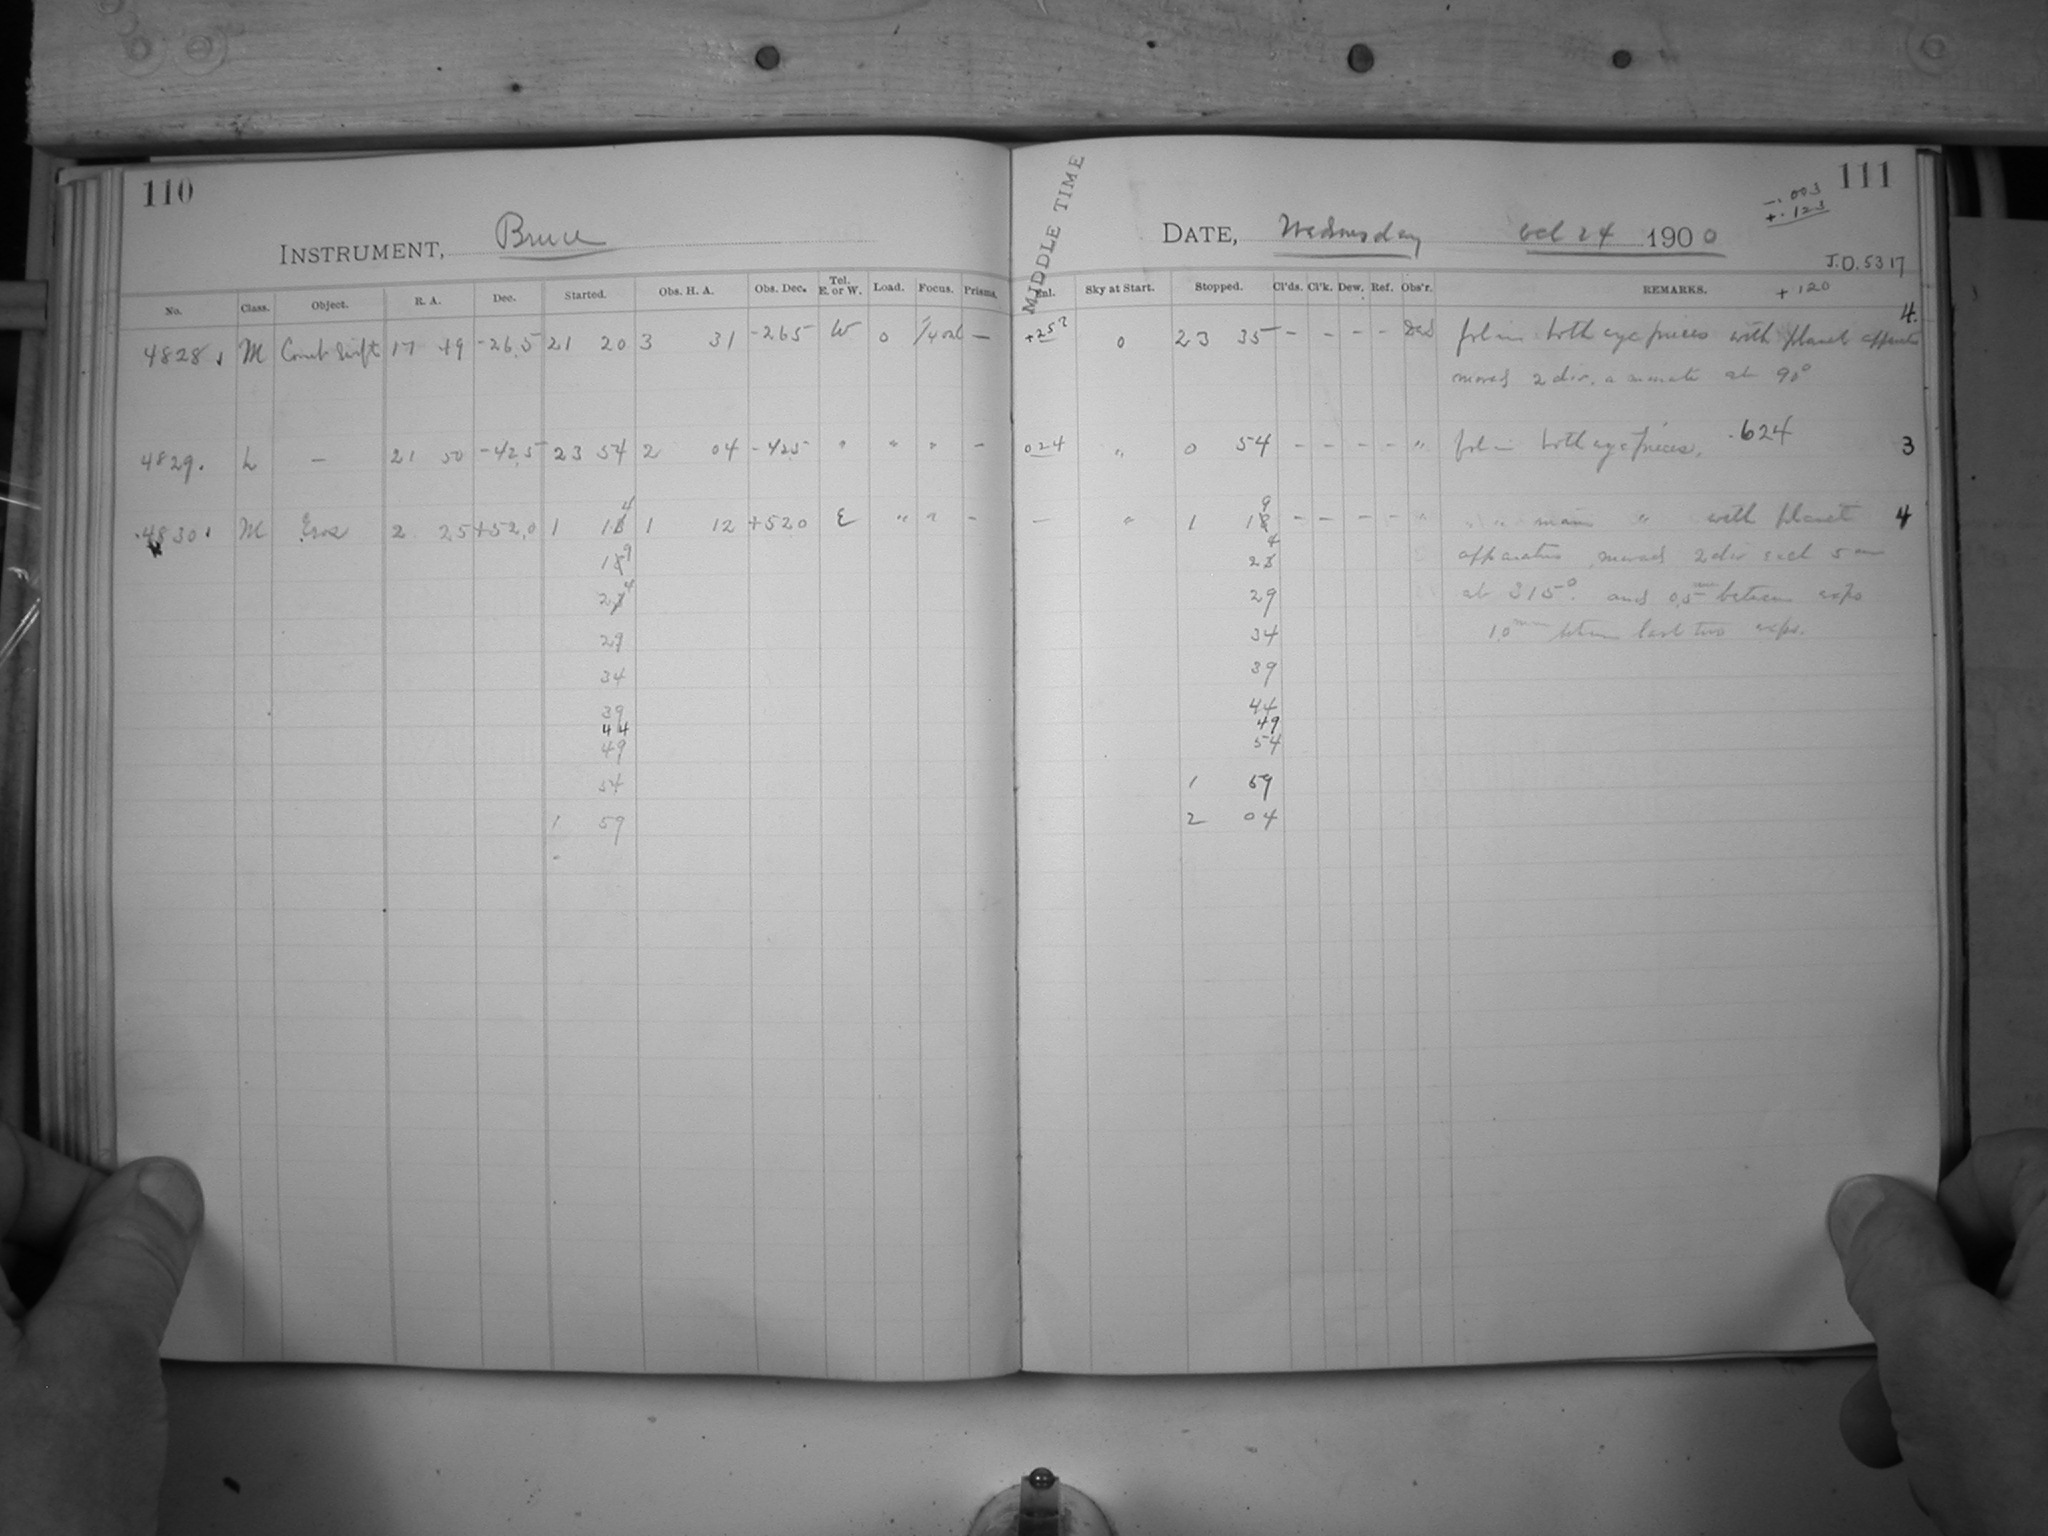 110
INSTRUMENT, Bruce
No. Class. Object. R. A. Dec. Started. Obs. H. A. Obs. Dec. Tel. E. or W. Load. Focus. Prisms.
4828 M Comet Swift 17 49 -26.5 21 20 3 31 -26.5 W 0 —
4829. L — 21 50 -42.5 23 54 2 04 -42.5 " " " —
4830 M Eros 2 25 +52.0 1 14 1 12 +52.0 E " " —
19
24
29
34
39
44
49
54
1 59
111
-.003
+.123
MIDDLE TIME
DATE, Wednesday Oct 24 1900
J.D. 5317
+120
Enl. Sky at Start. Stopped. Cl'ds. Cl'k. Dew. Ref. Obs'r. REMARKS.
0 23 35 — — — — fol in both eye pieces with planet apparatus 4.
moved 2 div. a minute at 90°
024 " 0 54 — — — — " fol in both eye pieces. .624 3
— " 1 19 — — — — " " " main " with planet 4
apparatus, moved 2 div each 5 m
24
at 315°. and 0.5 mm between expo
29
1.0 mm between last two expo.
34
39
44
49
54
1 59
2 04